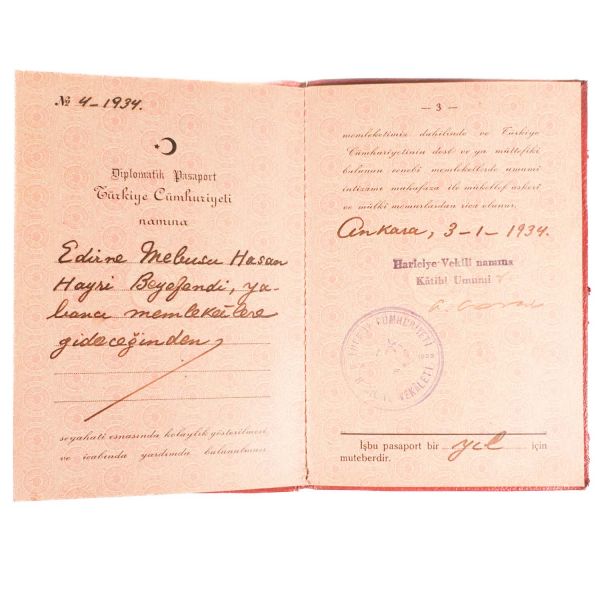 № 4-1934.
Diplomatik Pasaport
Türkiye Cümhuriyeti
namına
Edirne Mebusu Hasan
Hayri Beyefendi, ya-
bancı memleketlere
gideceğinden,
seyahati esnasında kolaylık gösterilmesi
ve icabında yardımda bulunulması
— 3 —
memleketimiz dahilinde ve Türkiye
Cümhuriyetinin dost ve ya müttefiki
bulunan ecnebi memleketlerde umumi
intizamı muhafaza ile mükellef askeri
ve mülki memurlardan rica olunur.
Ankara, 3-1-1934.
Hariciye Vekili namına
Kâtibi Umumî
TÜRKİYE CÜMHURİYETİ
VEKÂLETİ
İşbu pasaport bir yıl için
muteberdir.